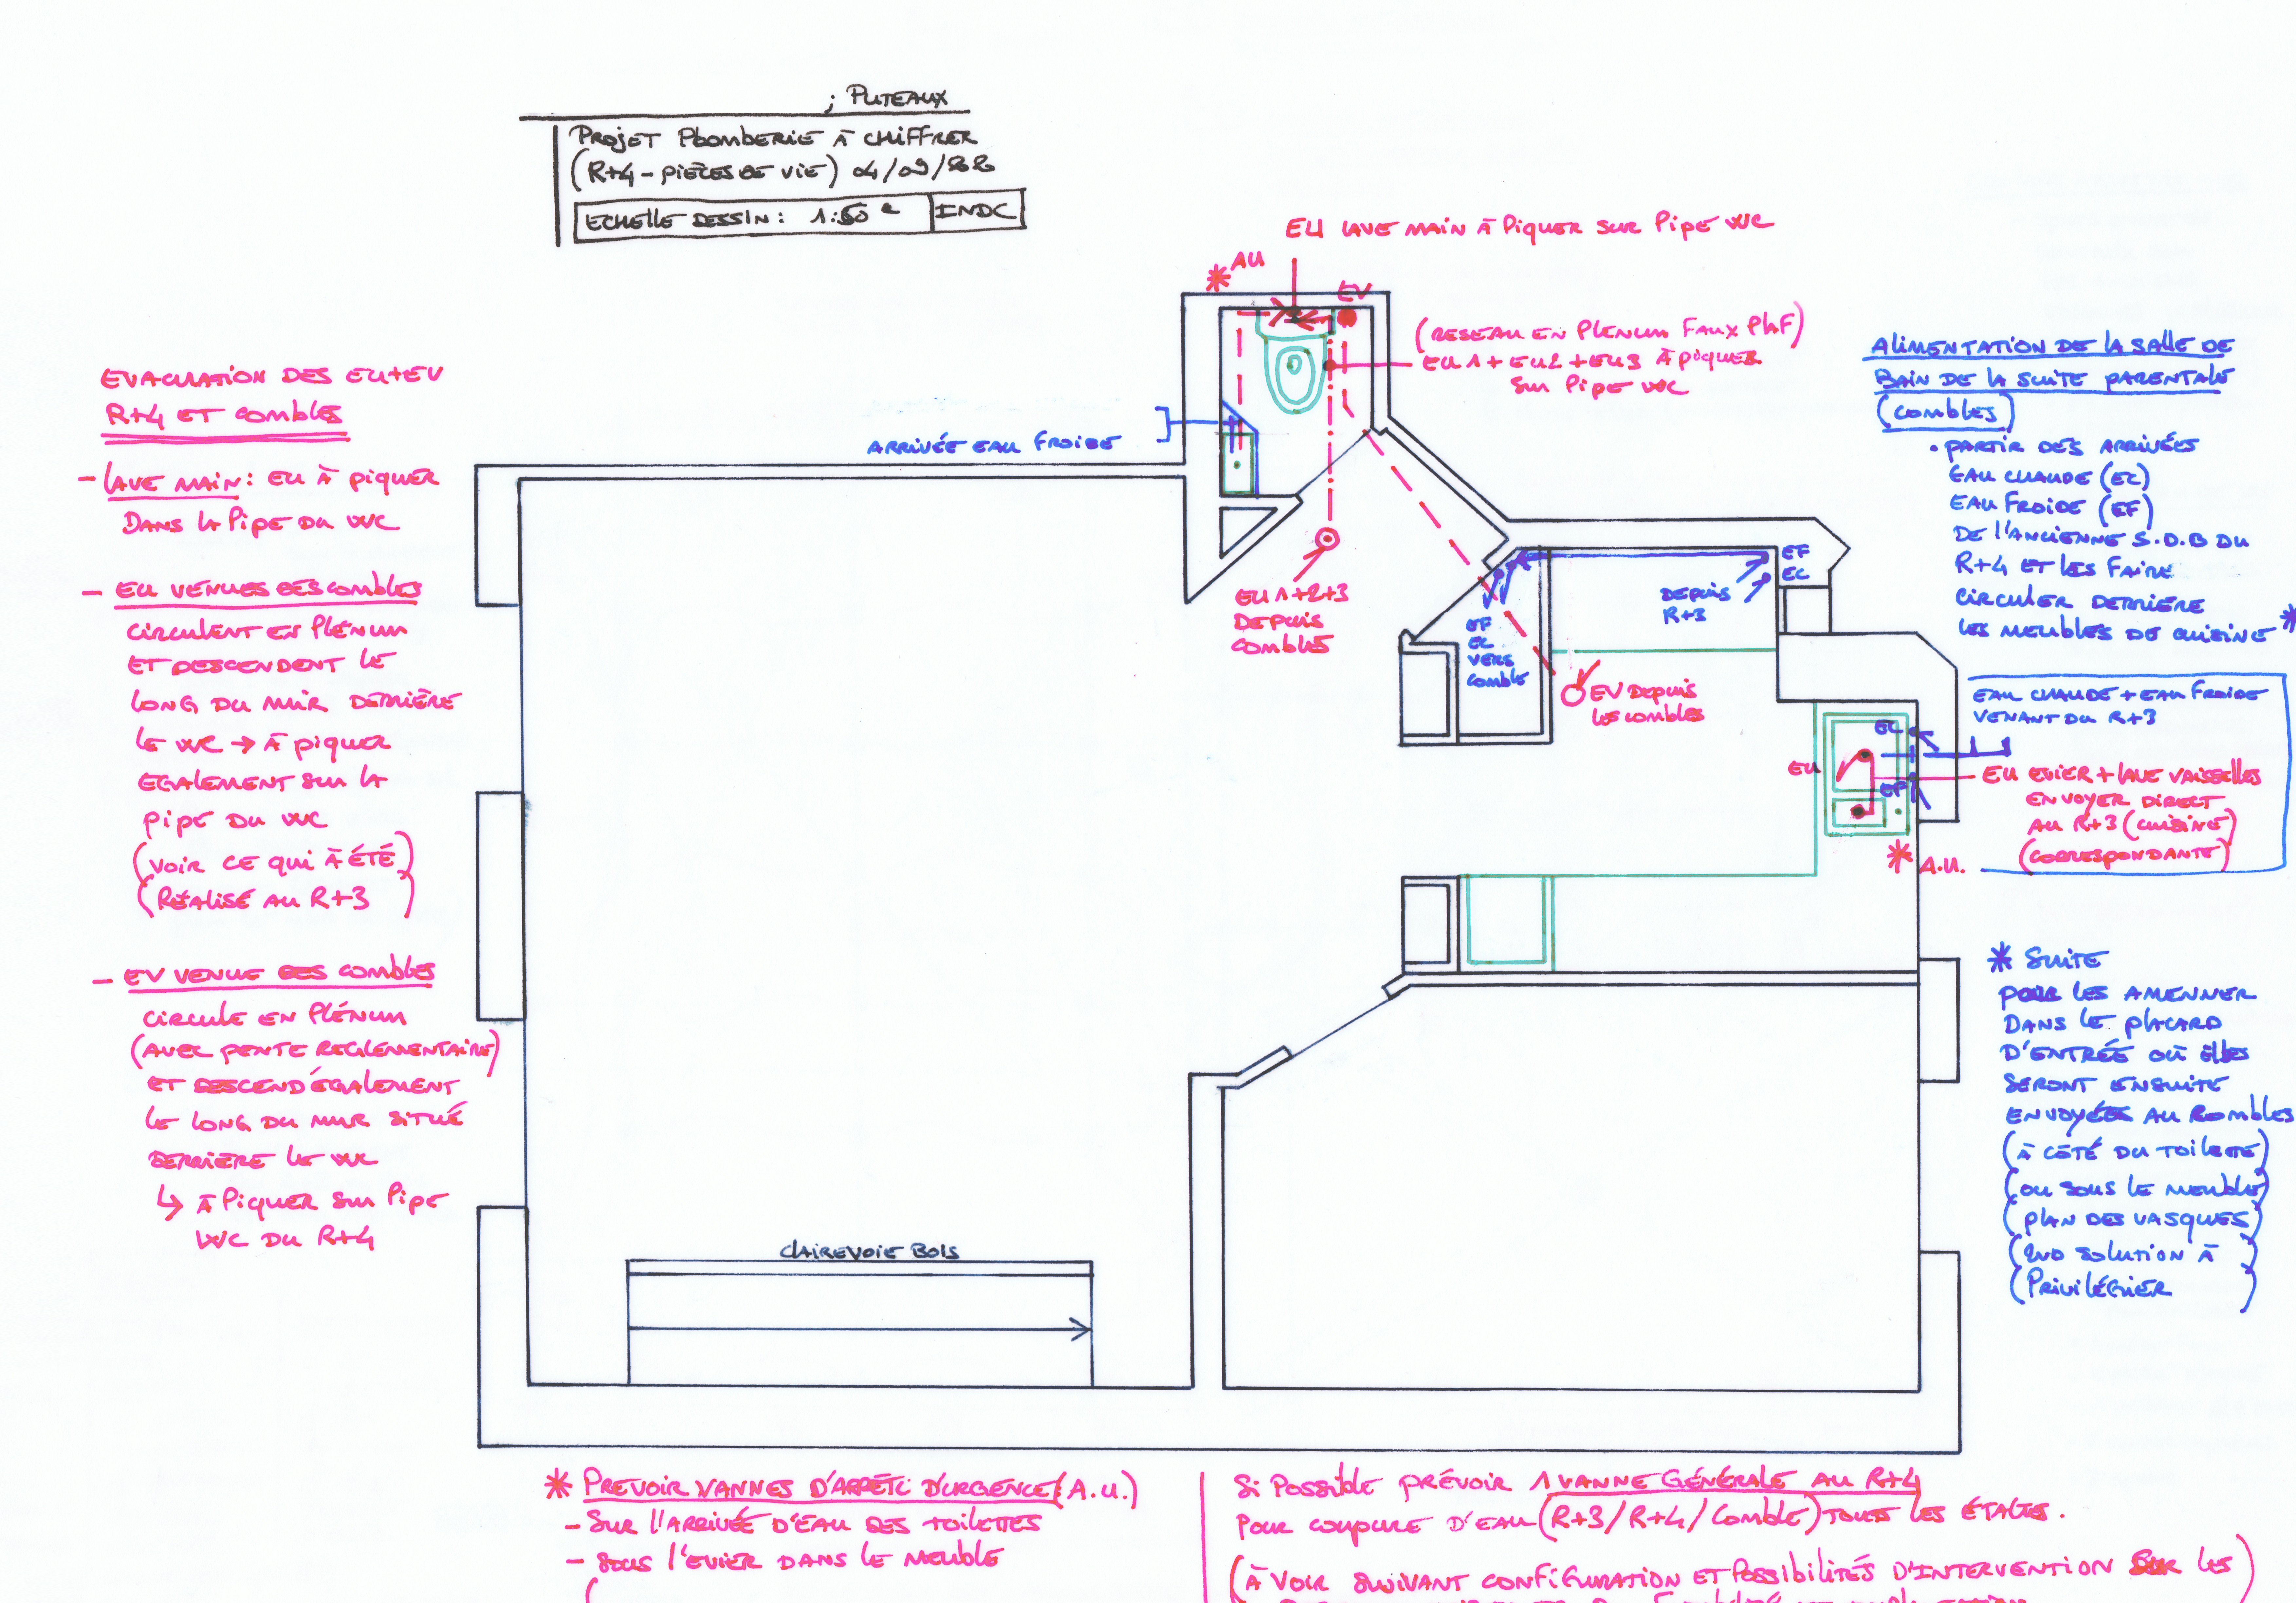 ; PUTEAUX
PROJET PLOMBERIE À CHIFFRER
(R+4 - PIÈCES DE VIE) 04/09/22
ECHELLE DESSIN : 1:50e INDC
EU LAVE MAIN À PIQUER SUR PIPE WC
* AU
EV
(RESEAU EN PLENUM FAUX PLAF)
EU1 + EU2 + EU3 À PIQUER
SUR PIPE WC
ARRIVÉE EAU FROIDE
EU 1+2+3
DEPUIS
COMBLES
EF
EC
DEPUIS
R+3
EF
EC
VERS
COMBLE
EV DEPUIS
LES COMBLES
EC
EU
EF
* A.U.
CLAIREVOIE BOIS
EVACUATION DES EU+EV
R+4 ET COMBLES
- LAVE MAIN : EU À PIQUER
DANS LA PIPE DU WC
- EU VENUES DES COMBLES
CIRCULENT EN PLÉNUM
ET DESCENDENT LE
LONG DU MUR DERRIÈRE
LE WC → À PIQUER
EGALEMENT SUR LA
PIPE DU WC
(VOIR CE QUI À ÉTÉ)
(RÉALISÉ AU R+3)
- EV VENUE DES COMBLES
CIRCULE EN PLÉNUM
(AVEC PENTE REGLEMENTAIRE)
ET DESCEND ÉGALEMENT
LE LONG DU MUR SITUÉ
DERRIÈRE LE WC
↳ À PIQUER SUR PIPE
WC DU R+4
ALIMENTATION DE LA SALLE DE
BAIN DE LA SUITE PARENTALE
(COMBLES)
• PARTIR DES ARRIVÉES
EAU CHAUDE (EC)
EAU FROIDE (EF)
DE L'ANCIENNE S.D.B DU
R+4 ET LES FAIRE
CIRCULER DERRIERE
LES MEUBLES DE CUISINE *
EAU CHAUDE + EAU FROIDE
VENANT DU R+3
EU EVIER + LAVE VAISSELLES
ENVOYER DIRECT
AU R+3 (CUISINE)
(CORRESPONDANTE)
* SUITE
POUR LES AMENNER
DANS LE PLACARD
D'ENTRÉE OÙ ELLES
SERONT ENSUITE
ENVOYÉES AU COMBLES
(À CÔTÉ DU TOILETTE)
(OU SOUS LE MEUBLE)
(PLAN DES VASQUES)
(2ND SOLUTION À)
(PRIVILÉGIER)
* PREVOIR VANNES D'ARRÊT D'URGENCE (A.U.)
- SUR L'ARRIVÉE D'EAU DES TOILETTES
- SOUS L'EVIER DANS LE MEUBLE
SI POSSIBLE PRÉVOIR 1 VANNE GÉNÉRALE AU R+4
POUR COUPURE D'EAU (R+3/R+4/COMBLE) TOUT LES ÉTAGES.
(À VOIR SUIVANT CONFIGURATION ET POSSIBILITÉS D'INTERVENTION SUR LES)